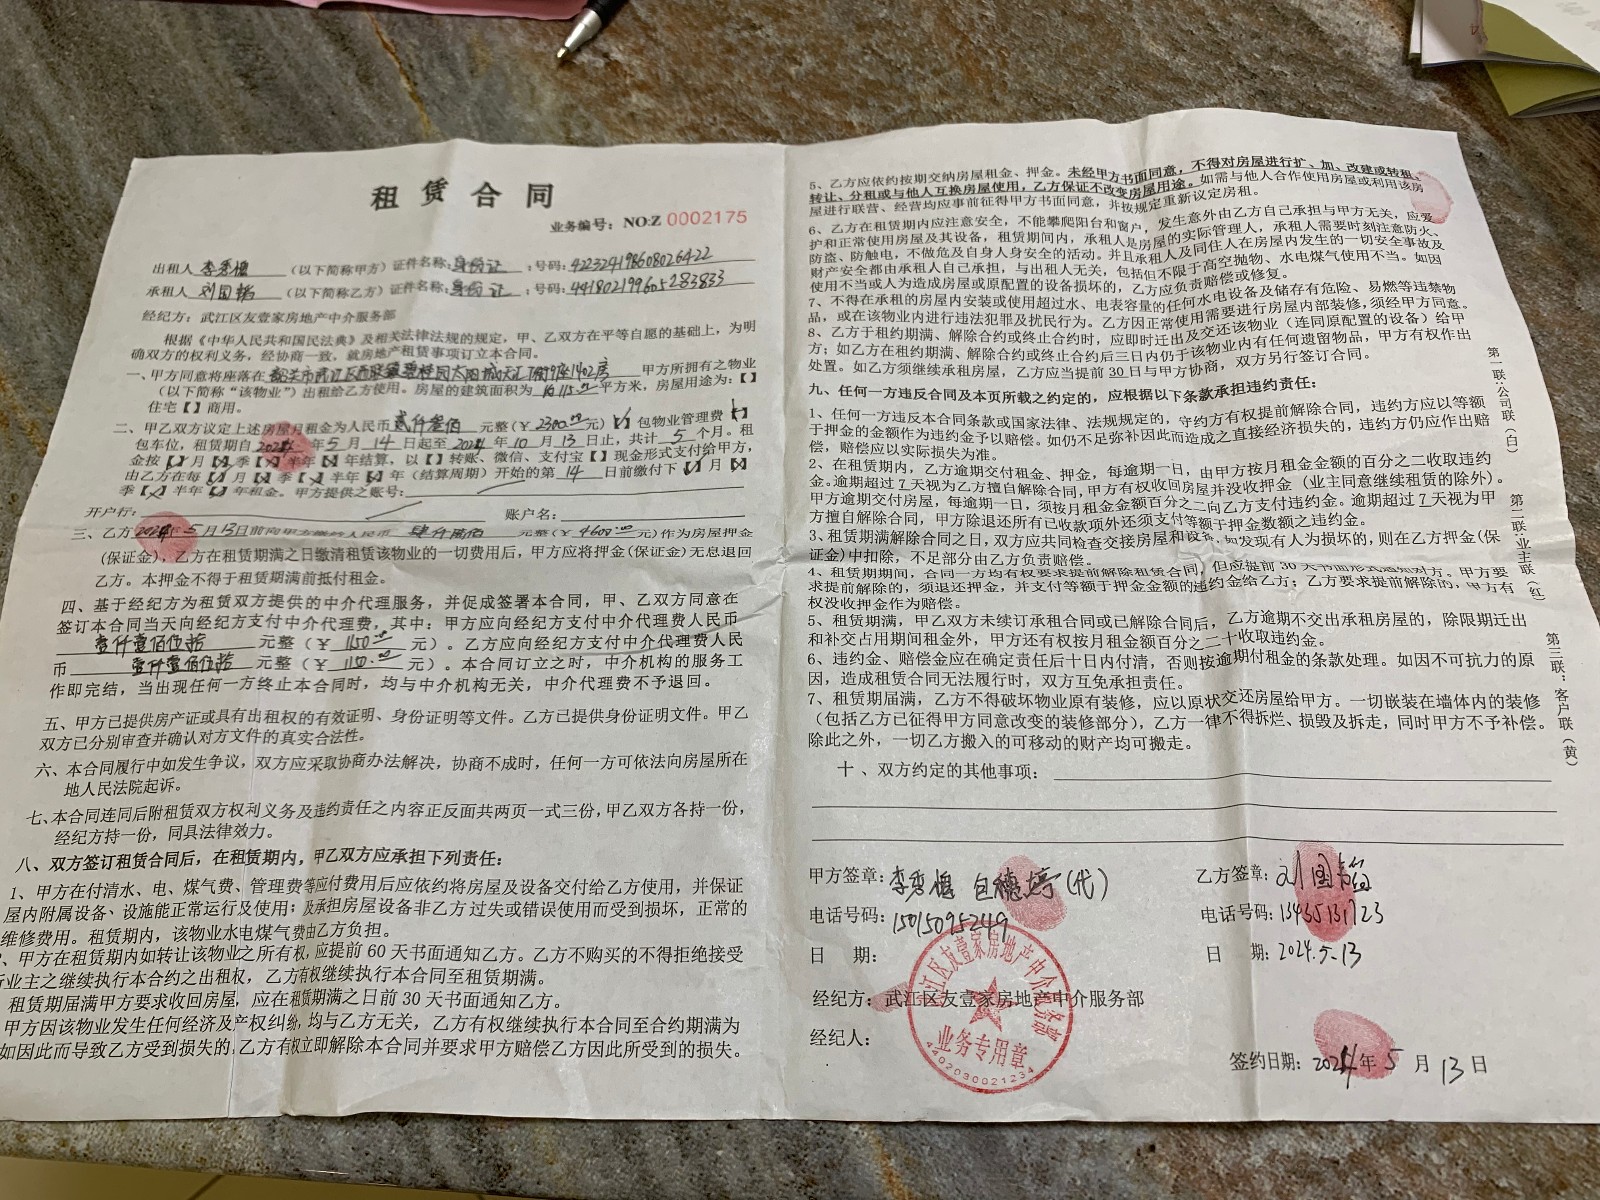 租赁合同
业务编号：NO:Z 0002175
出租人 李秀 （以下简称甲方）证件名称:身份证 ；号码:422324198608026422
承租人 刘国韬 （以下简称乙方）证件名称:身份证 ；号码:441802199605283833
经纪方：武江区友壹家房地产中介服务部
根据《中华人民共和国民法典》及相关法律法规的规定，甲、乙双方在平等自愿的基础上，为明
确双方的权利义务，经协商一致，就房地产租赁事项订立本合同。
一、甲方同意将座落在 韶关市武江区西联镇碧桂园太阳城天汇 1402房 甲方所拥有之物业
（以下简称“该物业”）出租给乙方使用。房屋的建筑面积为 平方米，房屋用途为：【】
住宅【】商用。
二、甲乙双方议定上述房屋月租金为人民币 贰仟叁佰 元整（￥2300.00元）【√】包物业管理费【】
包车位，租赁期自 2024 年 5 月 14 日起至 2024 年 10 月 13 日止，共计 5 个月。租
金按【】月【】季【】半年【】年结算，以【】转账、微信、支付宝【】现金形式支付给甲方，
由乙方在每【】月【】季【】半年【】年（结算周期）开始的第 14 日前缴付下【】月【】
季【】半年【】年租金。甲方提供之账号：
开户行： 账户名：
三、乙方 2024年 5 月 13 日前向甲方缴纳人民币 肆仟陆佰 元整（￥4600.00元）作为房屋押金
(保证金)，乙方在租赁期满之日缴清租赁该物业的一切费用后，甲方应将押金(保证金)无息退回
乙方。本押金不得于租赁期满前抵付租金。
四、基于经纪方为租赁双方提供的中介代理服务，并促成签署本合同，甲、乙双方同意在
签订本合同当天向经纪方支付中介代理费，其中：甲方应向经纪方支付中介代理费人民币
壹仟壹佰伍拾 元整（￥ 1150.00 元）。乙方应向经纪方支付中介代理费人民
币 壹仟壹佰伍拾 元整（￥ 1150.00 元）。本合同订立之时，中介机构的服务工
作即完结，当出现任何一方终止本合同时，均与中介机构无关，中介代理费不予退回。
五、甲方已提供房产证或具有出租权的有效证明、身份证明等文件。乙方已提供身份证明文件。甲乙
双方已分别审查并确认对方文件的真实合法性。
六、本合同履行中如发生争议，双方应采取协商办法解决，协商不成时，任何一方可依法向房屋所在
地人民法院起诉。
七、本合同连同后附租赁双方权利义务及违约责任之内容正反面共两页一式三份，甲乙双方各持一份，
经纪方持一份，同具法律效力。
八、双方签订租赁合同后，在租赁期内，甲乙双方应承担下列责任：
1、甲方在付清水、电、煤气费、管理费等应付费用后应依约将房屋及设备交付给乙方使用，并保证
屋内附属设备、设施能正常运行及使用；及承担房屋设备非乙方过失或错误使用而受到损坏，正常的
维修费用。租赁期内，该物业水电煤气费由乙方负担。
、甲方在租赁期内如转让该物业之所有权，应提前 60 天书面通知乙方。乙方不购买的不得拒绝接受
业主之继续执行本合约之出租权，乙方有权继续执行本合同至租赁期满。
租赁期届满甲方要求收回房屋，应在租赁期满之日前 30 天书面通知乙方。
甲方因该物业发生任何经济及产权纠纷，均与乙方无关，乙方有权继续执行本合同至合约期满为
如因此而导致乙方受到损失的，乙方有权立即解除本合同并要求甲方赔偿乙方因此所受到的损失。
5、乙方应依约按期交纳房屋租金、押金。未经甲方书面同意，不得对房屋进行扩、加、改建或转租、
转让、分租或与他人互换房屋使用，乙方保证不改变房屋用途。如需与他人合作使用房屋或利用该房
屋进行联营、经营均应事前征得甲方书面同意，并按规定重新议定房租。
6、乙方在租赁期内应注意安全，不能攀爬阳台和窗户，发生意外由乙方自己承担与甲方无关，应爱
护和正常使用房屋及其设备，租赁期间内，承租人是房屋的实际管理人，承租人需要时刻注意防火、
防盗、防触电，不做危及自身人身安全的活动。并且承租人及同住人在房屋内发生的一切安全事故及
财产安全都由承租人自己承担，与出租人无关，包括但不限于高空抛物、水电煤气使用不当。如因
使用不当或人为造成房屋或原配置的设备损坏的，乙方应负责赔偿或修复。
7、不得在承租的房屋内安装或使用超过水、电表容量的任何水电设备及储存有危险、易燃等违禁物
品，或在该物业内进行违法犯罪及扰民行为。乙方因正常使用需要进行房屋内部装修，须经甲方同意。
8、乙方于租约期满、解除合约或终止合约时，应即时迁出及交还该物业（连同原配置的设备）给甲
方；如乙方在租约期满、解除合约或终止合约后三日内仍于该物业内有任何遗留物品，甲方有权作出
处置。如乙方须继续承租房屋，乙方应当提前 30 日与甲方协商，双方另行签订合同。
九、任何一方违反合同及本页所载之约定的，应根据以下条款承担违约责任：
1、任何一方违反本合同条款或国家法律、法规规定的，守约方有权提前解除合同，违约方应以等额
于押金的金额作为违约金予以赔偿。如仍不足弥补因此而造成之直接经济损失的，违约方仍应作出赔
偿，赔偿应以实际损失为准。
2、在租赁期内，乙方逾期交付租金、押金，每逾期一日，由甲方按月租金金额的百分之二收取违约
金。逾期超过 7 天视为乙方擅自解除合同，甲方有权收回房屋并没收押金（业主同意继续租赁的除外）。
甲方逾期交付房屋，每逾期一日，须按月租金金额百分之二向乙方支付违约金。逾期超过 7 天视为甲
方擅自解除合同，甲方除退还所有已收款项外还须支付等额于押金数额之违约金。
3、租赁期满解除合同之日，双方应共同检查交接房屋和设备，如发现有人为损坏的，则在乙方押金(保
证金)中扣除，不足部分由乙方负责赔偿。
4、租赁期期间，合同一方均有权要求提前解除租赁合同，但应提前 30 天书面形式通知对方。甲方要
求提前解除的，须退还押金，并支付等额于押金金额的违约金给乙方；乙方要求提前解除的，甲方有
权没收押金作为赔偿。
5、租赁期满，甲乙双方未续订承租合同或已解除合同后，乙方逾期不交出承租房屋的，除限期迁出
和补交占用期间租金外，甲方还有权按月租金金额百分之二十收取违约金。
6、违约金、赔偿金应在确定责任后十日内付清，否则按逾期付租金的条款处理。如因不可抗力的原
因，造成租赁合同无法履行时，双方互免承担责任。
7、租赁期届满，乙方不得破坏物业原有装修，应以原状交还房屋给甲方。一切嵌装在墙体内的装修
（包括乙方已征得甲方同意改变的装修部分），乙方一律不得拆烂、损毁及拆走，同时甲方不予补偿。
除此之外，一切乙方搬入的可移动的财产均可搬走。
十、双方约定的其他事项：
甲方签章：李秀 (代) 乙方签章：刘国韬
电话号码：15015095249 电话号码：13435131723
日 期： 日 期：2024.5.13
经纪方：武江区友壹家房地产中介服务部
经纪人：
签约日期：2024年 5 月 13 日
武江区友壹家房地产中介服务部
业务专用章
4402030021234
第一联：公司联（白）
第二联：业主联（红）
第三联：客户联（黄）